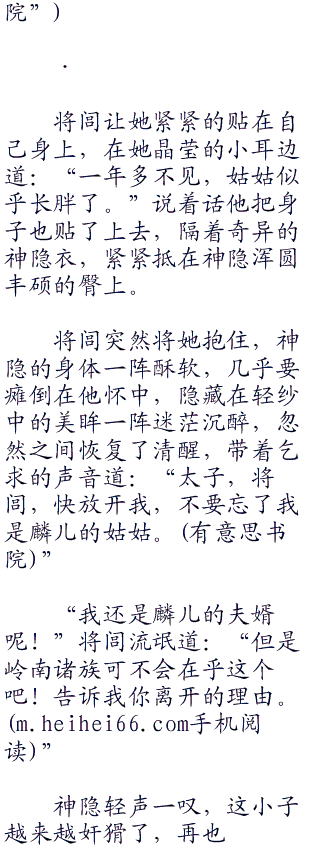 院”)
.
将闾让她紧紧的贴在自
己身上，在她晶莹的小耳边
道：“一年多不见，姑姑似
乎长胖了。”说着话他把身
子也贴了上去，隔着奇异的
神隐衣，紧紧抵在神隐浑圆
丰硕的臀上。
将闾突然将她抱住，神
隐的身体一阵酥软，几乎要
瘫倒在他怀中，隐藏在轻纱
中的美眸一阵迷茫沉醉，忽
然之间恢复了清醒，带着乞
求的声音道：“太子，将
闾，快放开我，不要忘了我
是麟儿的姑姑。(有意思书
院)”
“我还是麟儿的夫婿
呢！”将闾流氓道：“但是
岭南诸族可不会在乎这个
吧！告诉我你离开的理由。
(m.heihei66.com手机阅
读)”
神隐轻声一叹，这小子
越来越奸猾了，再也